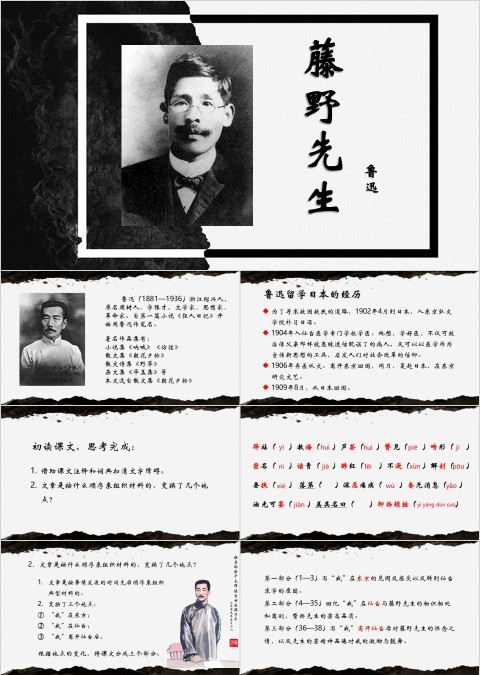 藤野先生
鲁迅
鲁迅(1881—1936)浙江绍兴人，
原名周树人，字豫才，文学家、思想家、
革命家。自第一篇小说《狂人日记》开
始用鲁迅作笔名。
著名作品集有：
小说集《呐喊》《彷徨》
散文集《朝花夕拾》
散文诗集《野草》
杂文集《华盖集》等
本文选自散文集《朝花夕拾》
鲁迅留学日本的经历
为了寻求救国救民的道路，1902年4月到日本，入东京弘文
学院补习日语。
1904年入仙台医学专门学校学医。他想，学好医，不仅可救
治像父亲那样被愚昧迷信耽误了的病人，又可以以医学作为
宣传新思想的工具，启发人们对社会改革的信仰。
1906年弃医从文。离开东京回国，同月，复赴日本，在东京
研究文艺。
1909年8月，从日本回国。
初读课文，思考完成：
1. 借助课文注释和词典扫清文字障碍。
2. 文章是按什么顺序来组织材料的，变换了几个地
点？
驿站（yì）教诲（huì）芦荟（huì）瞥见（piē）畸形（jī）
匿名（nì）诘责（jié）绯红（fēi）不逊（xùn）解剖（pōu）
要挟（xié）落第（ ）深恶痛疾（wù）杳无消息（yǎo）
油光可鉴（jiàn）美其名曰（ ）抑扬顿挫（yì yáng dùn cuò）
2. 文章是按什么顺序来组织材料的，变换了几个地点？
1. 文章是按事情发展的时间先后顺序来组织
典型材料的。
2. 变换了三个地点：
① “我”在东京；
② “我”在仙台；
③ “我”离开仙台后。
根据地点的变化，将课文分成三个部分：
第一部分（1—3）写“我”在东京的见闻及感受以及转到仙台
求学的原因。
第二部分（4—35）回忆“我”在仙台与藤野先生的相识相处
和离别，赞扬先生的崇高品质。
第三部分（36—38）写“我”离开仙台后对藤野先生的怀念之
情，以及先生的崇精神品德对我的激励与鼓舞。